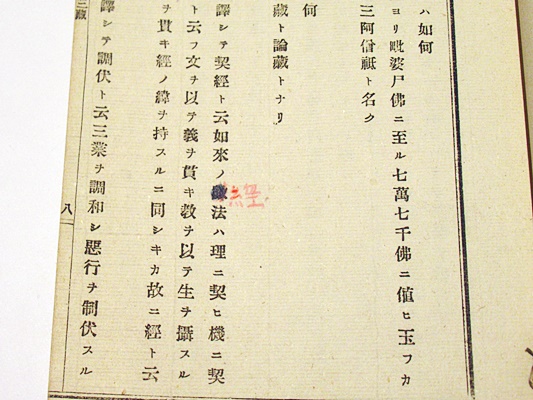 ハ如何
ヨリ毗婆尸佛ニ至ル七萬七千佛ニ値ヒ玉フカ
三阿僧祗ト名ク
何
藏ト論藏トナリ
譯シテ契經ト云如來ノ
法ハ理ニ契ヒ機ニ契
ト云フ文チ以テ義チ貫キ敎チ以テ生チ攝スル
チ貫キ經ノ緯チ持スルニ同シキカ故ニ經ト云
譯シテ調伏ト云三業チ調和シ惡行チ制伏スル
三藏
八